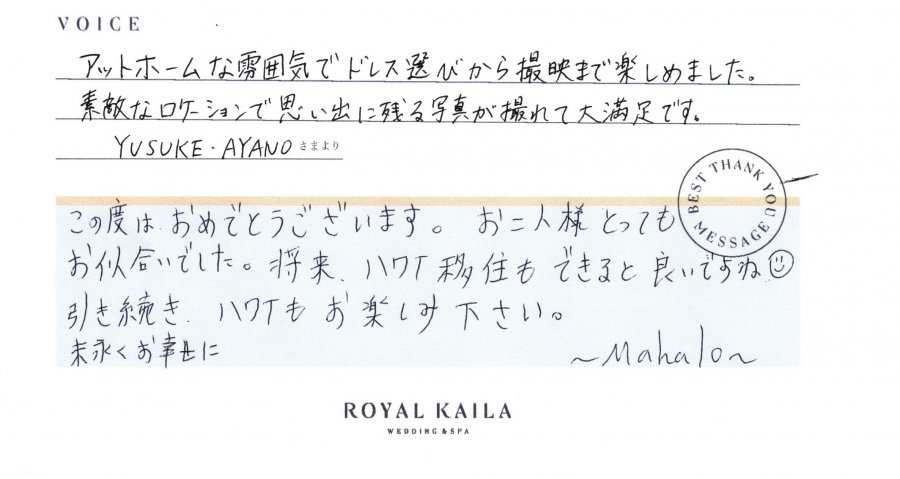 VOICE
アットホームな雰囲気でドレス選びから撮映まで楽しめました。
素敵なロケーションで思い出に残る写真が撮れて大満足です。
YUSUKE・AYANO さまより
BEST THANK YOU MESSAGE
この度は おめでとうございます。 お二人様 とっても
お似合いでした。将来、ハワイ移住も できると 良いですね☺
引き続き、ハワイも お楽しみ 下さい。
末永くお幸せに
～Mahalo～
ROYAL KAILA
WEDDING & SPA